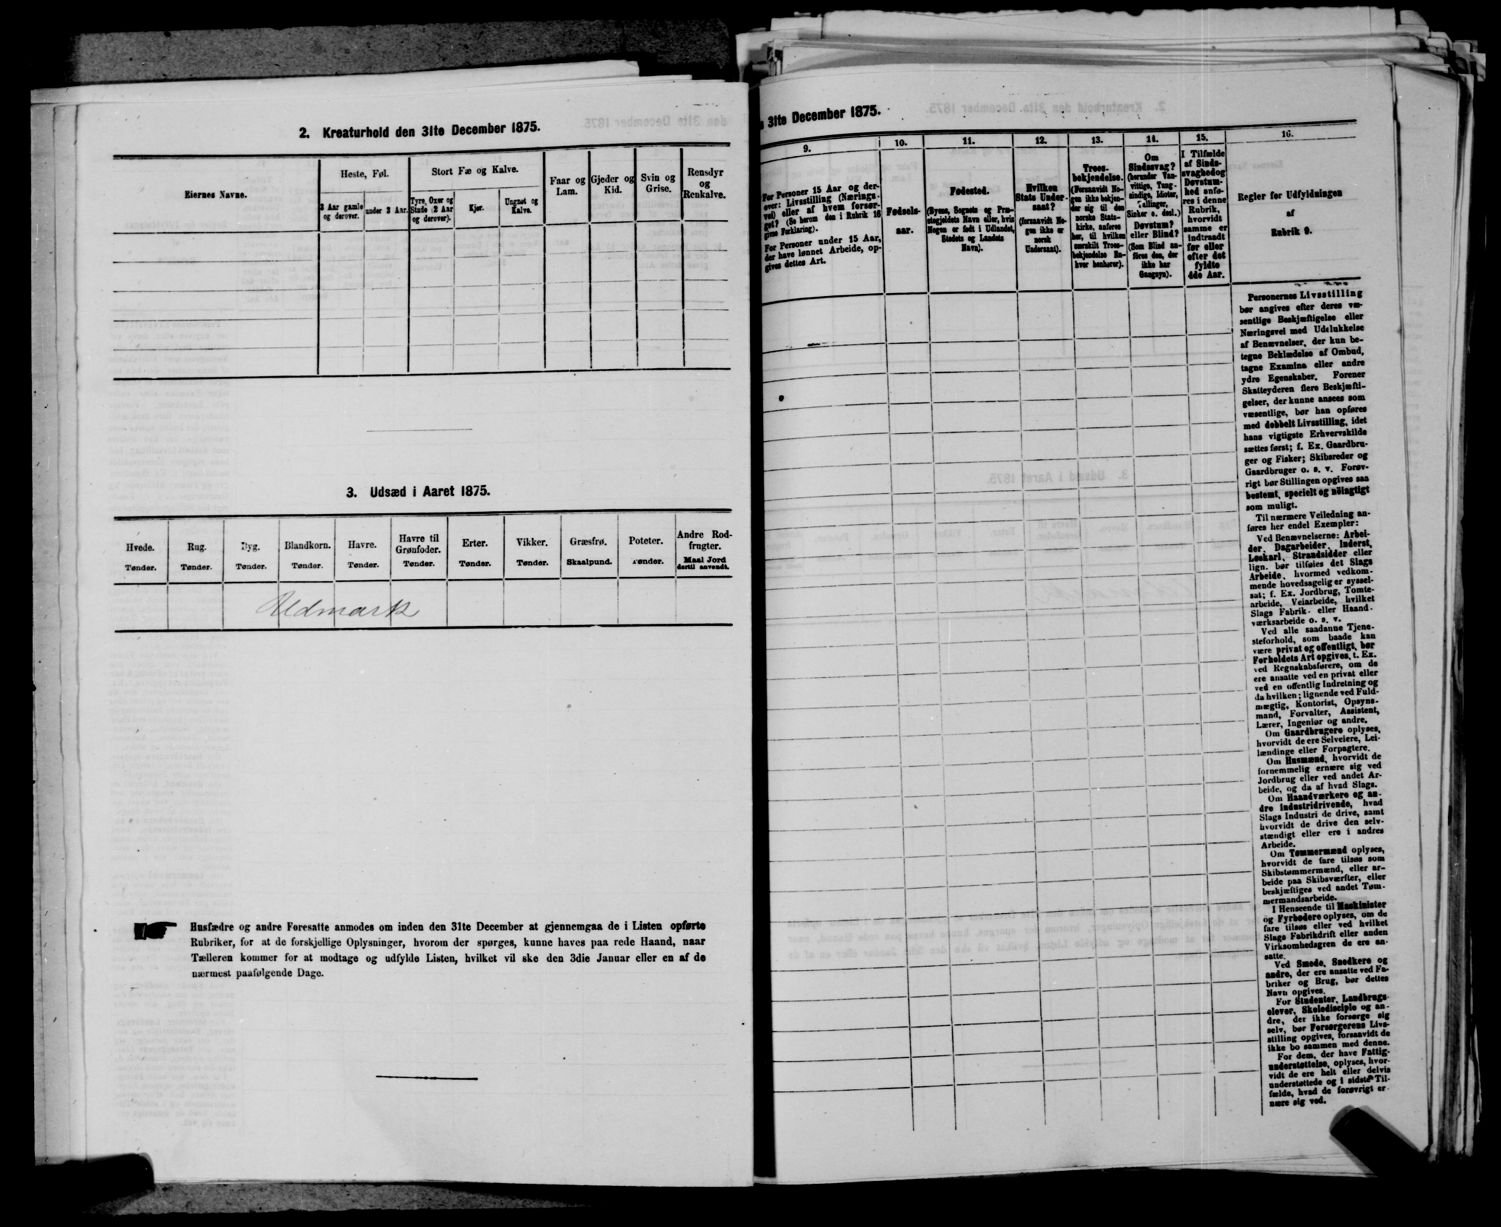 2. Kreaturhold den 31te December 1875.
Eiernes Navne.
Heste, Føl.
3 Aar gamle og derover.
under 3 Aar.
Stort Fæ og Kalve.
Tyre, Oxer og Stude (2 Aar og derover).
Kjør.
Ungnøt og Kalve.
Faar og Lam.
Gjeder og Kid.
Svin og Grise.
Rensdyr og Renkalve.
3. Udsæd i Aaret 1875.
Hvede.
Tønder.
Rug.
Tønder.
Byg.
Tønder.
Blandkorn.
Tønder.
Havre.
Tønder.
Havre til Grønfoder.
Tønder.
Erter.
Tønder.
Vikker.
Tønder.
Græsfrø.
Skaalpund.
Poteter.
Tønder.
Andre Rodfrugter.
Maal Jord dertil anvendt.
Udmark
Husfædre og andre Foresatte anmodes om inden den 31te December at gjennemgaa de i Listen opførte
Rubriker, for at de forskjellige Oplysninger, hvorom der spørges, kunne haves paa rede Haand, naar
Tælleren kommer for at modtage og udfylde Listen, hvilket vil ske den 3die Januar eller en af de
nærmest paafølgende Dage.
31te December 1875.
9.
For Personer 15 Aar og derover: Livsstilling (Næringsvei) eller af hvem forsørget? (Se herom den i Rubrik 16 givne Forklaring).
For Personer under 15 Aar, der have lønnet Arbeide, opgives dettes Art.
10.
Fødselsaar.
11.
Fødested.
(Byens, Sognets og Præstegjeldets Navn eller, hvis Nogen er født i Udlandet, Stedets og Landets Navn).
12.
Hvilken Stats Undersaat?
(forsaavidt Nogen ikke er norsk Undersaat).
13.
Troesbekjendelse.
(Forsaavidt Nogen ikke bekjender sig til den norske Statskirke, anføres her, til hvilken særskilt Troesbekjendelse Enhver henhører).
14.
Om Sindssvag? (herunder Vanvittige, Tungsindige, Idioter, Tullinger, Sinker o. desl.) Døvstum? eller Blind?
(Som Blind anføres den, der ikke har Gangsyn).
15.
I Tilfælde af Sindssvaghed og Døvstumhed anføres i denne Rubrik, hvorvidt samme er indtraadt før eller efter det fyldte 4de Aar.
16.
Regler for Udfyldningen
af
Rubrik 9.
Personernes Livsstilling
bør angives efter deres væ-
sentlige Beskjæftigelse eller
Næringsvei med Udelukkelse
af Benævnelser, der kun be-
tegne Beklædelse af Ombud,
tagne Examina eller andre
ydre Egenskaber. Forener
Skatteyderen flere Beskjæfti-
gelser, der kunne ansees som
væsentlige, bør han opføres
med dobbelt Livsstilling, idet
hans vigtigste Erhvervskilde
sættes først; f. Ex. Gaardbru-
ger og Fisker; Skibsreder og
Gaardbruger o. s. v. Forøv-
rigt bør Stillingen opgives saa
bestemt, specielt og nöiagtigt
som muligt.
Til nærmere Veiledning an-
føres her endel Exempler:
Ved Benævnelserne: Arbei-
der, Dagarbeider, Inderst,
Løskarl, Strandsidder eller
lign. bør tilføies det Slags
Arbeide, hvormed vedkom-
mende hovedsagelig er syssel-
sat; f. Ex. Jordbrug, Tomte-
arbeide, Veiarbeide, hvilket
Slags Fabrik- eller Haand-
værksarbeide o. s. v.
Ved alle saadanne Tjene-
steforhold, som baade kan
være privat og offentligt, bør
Forholdets Art opgives, t. Ex.
ved Regnskabsførere, om de
ere ansatte ved en privat eller
ved en offentlig Indretning og
da hvilken; lignende ved Fuld-
mægtig, Kontorist, Opsyns-
mand, Forvalter, Assistent,
Lærer, Ingeniør og andre.
Om Gaardbrugere oplyses,
hvorvidt de ere Selveiere, Lei-
lændinge eller Forpagtere.
Om Husmænd, hvorvidt de
fornemmelig ernære sig ved
Jordbrug eller ved andet Ar-
beide, og da af hvad Slags.
Om Haandværkere og an-
dre Industridrivende, hvad
Slags Industri de drive, samt
hvorvidt de drive den selv-
stændigt eller ere i andres
Arbeide.
Om Tømmermænd oplyses,
hvorvidt de fare tilsøs som
Skibstømmermænd, eller ar-
beide paa Skibsværfter, eller
beskjæftiges ved andet Tøm-
mermandsarbeide.
I Henseende til Maskinister
og Fyrbødere oplyses, om de
fare tilsøs eller ved hvilket
Slags Fabrikdrift eller anden
Virksomhedsgren de ere an-
satte.
Ved Smede, Snedkere og
andre, der ere ansatte ved Fa-
briker og Brug, bør dettes
Navn opgives.
For Studenter, Landbrugs-
elever, Skoledisciple og an-
dre, der ikke forsørge sig
selv, bør Forsørgerens Livs-
stilling opgives, forsaavidt de
ikke bo sammen med denne.
For dem, der have Fattig-
understøttelse, oplyses, hvor-
vidt de ere helt eller delvis
understøttede og i sidste Til-
fælde, hvad de forøvrigt er-
nære sig ved.